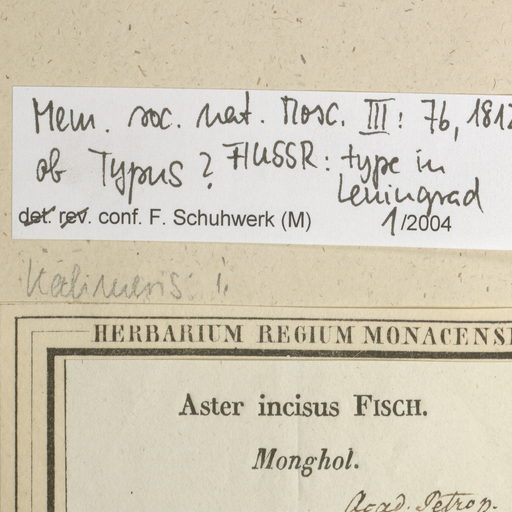 Mem. soc. nat. Mosc. III: 76, 1812
ob Typus? FlUSSR: type in
Leningrad
det. rev. conf. F. Schuhwerk (M) 1/2004
Kalimeris i.
HERBARIUM REGIUM MONACENS
Aster incisus FISCH.
Monghol.
Acad. Petrop.